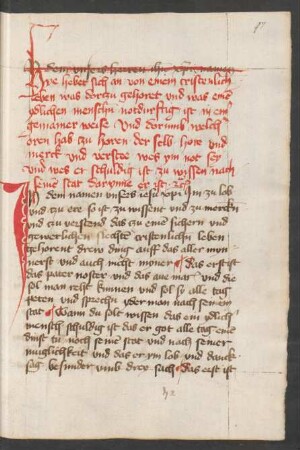 97
In dem unsers herren ihu xpi namen
Hye hebet sich an von einem cristenlich
leben was dortzu gehoret und was einē
ydlichen menschn notdurftig ist in eim
gemainer weise Und dorumb welch
oren hab zu horen der selb hore und
merck und verstee wes ym not sey
und wes er schuldig ist zu wissen nach
seinē stat dorynne er ist
In dem namen unsers iesu xpi Im zu lob
und zu ere so ist zu wissenn und zu merckn
und zu versteend das zu eine sichern und
gewerlichen slechtē cristenlichn leben
gehorent drew dings auff das aller myn
nerst und auch nicht myner das erst ist
das pater noster und das ave mar und die
sol man selbs kunnen und sol sy alle tag
peten und sprechn yder man nach seinem
stat Wann du solt wissen das ein ydlich
mensch schuldig ist das er got alle tag eine
dinst tu noch seine stat und nach seiner
muglichkeit und das er ym lob und danck
sag besunder umb drey sach das erst ist